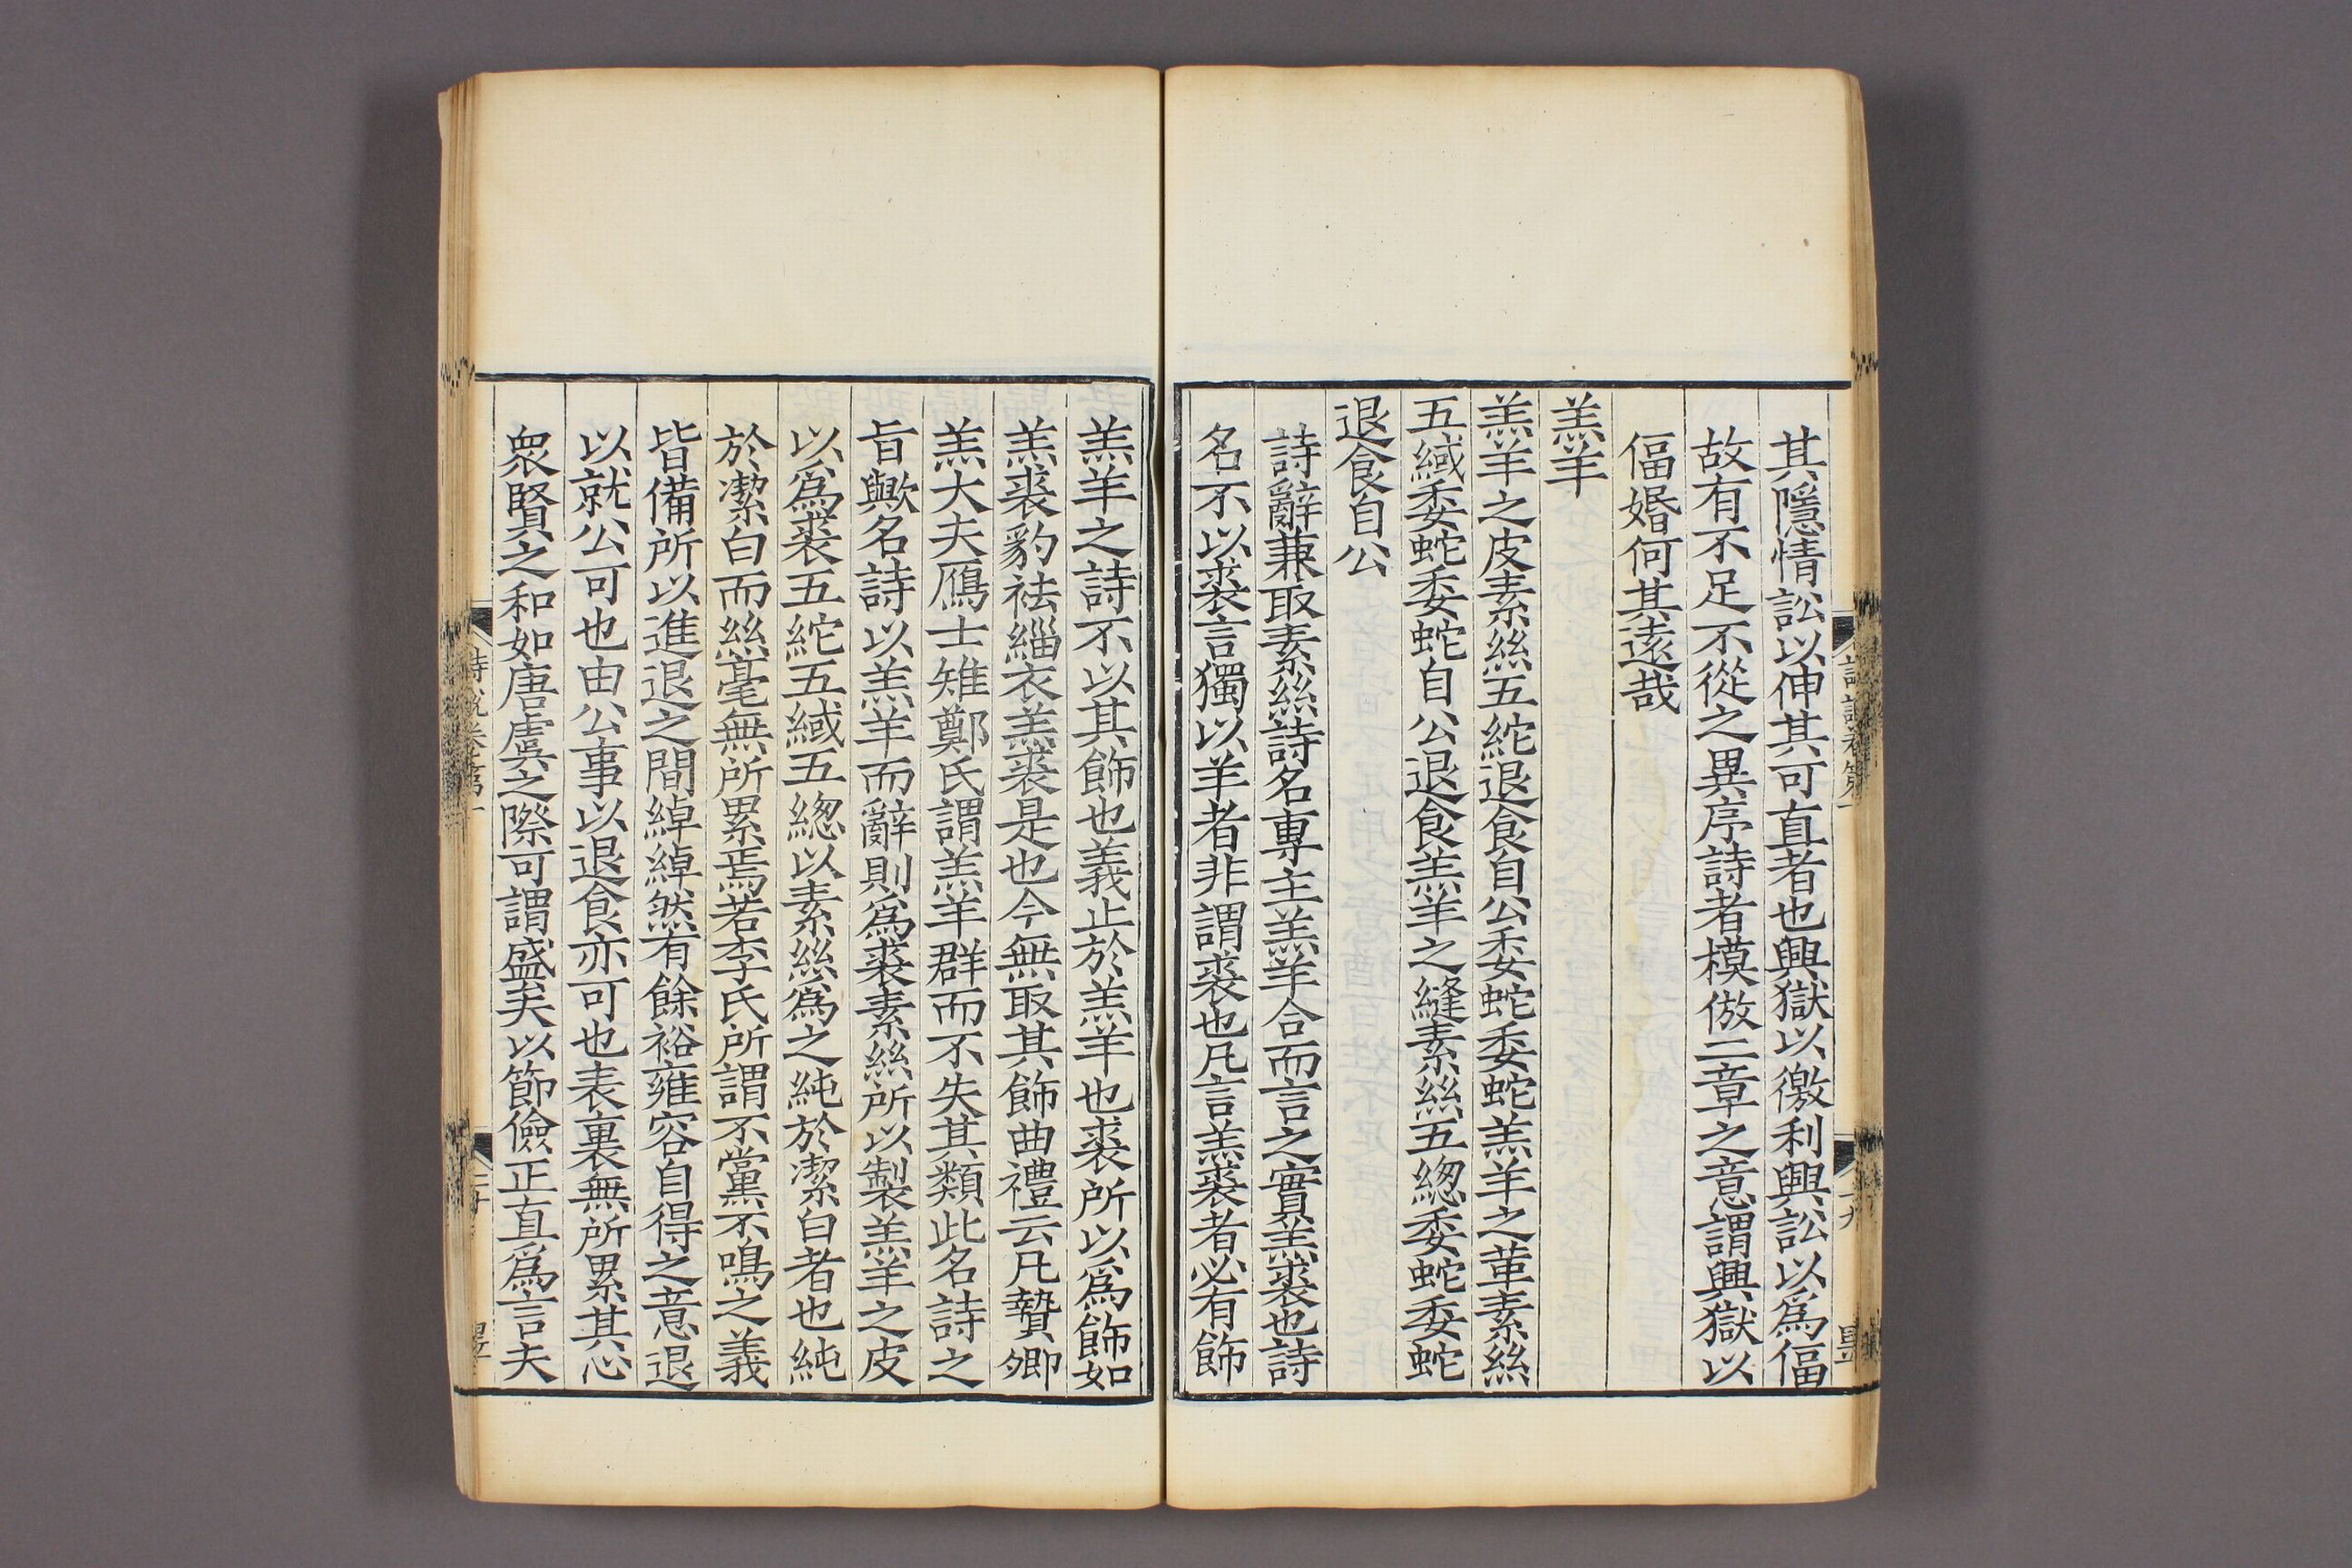 其隱情訟以伸其可直者也興獄以徼利興訟以爲偪
故有不足不從之異序詩者模倣二章之意謂興獄以
偪婚何其遠哉
羔羊
羔羊之皮素絲五紽退食自公委蛇委蛇羔羊之革素絲
五緎委蛇委蛇自公退食羔羊之縫素絲五緫委蛇委蛇
退食自公
詩辭兼取素絲詩名專主羔羊合而言之實羔裘也詩
名不以裘言獨以羊者非謂裘也凡言羔裘者必有飾
羔羊之詩不以其飾也義止於羔羊也裘所以爲飾如
羔裘豹袪緇衣羔裘是也今無取其飾曲禮云凡贄卿
羔大夫鴈士雉鄭氏謂羔羊群而不失其類此名詩之
旨歟名詩以羔羊而辭則爲裘素絲所以製羔羊之皮
以爲裘五紽五緎五緫以素絲爲之純於潔白者也純
於潔白而絲毫無所累焉若李氏所謂不黨不鳴之義
皆備所以進退之間綽綽然有餘裕雍容自得之意退
以就公可也由公事以退食亦可也表裏無所累其心
衆賢之和如唐虞之際可謂盛矣以節儉正直爲言夫
詩說卷第一
二十